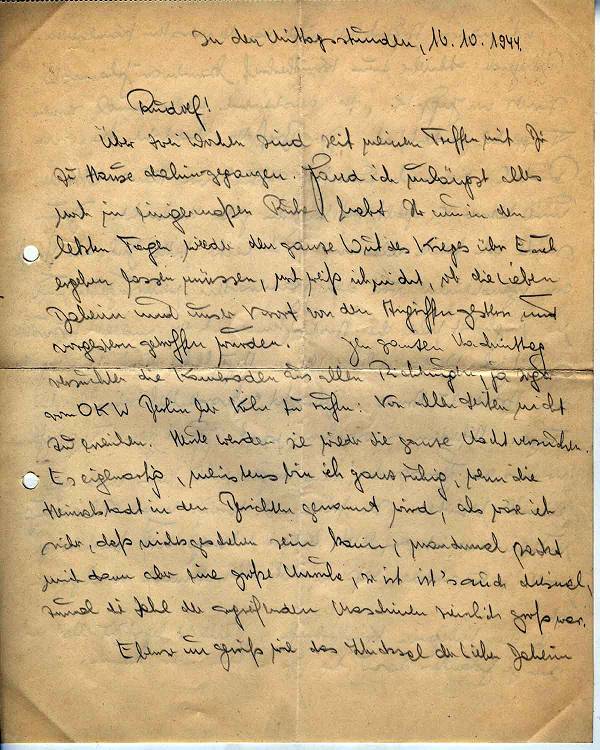 In den Mittagsstunden, 16.10.1944.
Rudolf!
Über zwei Wochen sind seit meinem Treffen mit Dir
zu Hause dahingegangen. Fand ich unlängst alles
noch in einigermaßen Ruhe, habt Ihr nun in den
letzten Tagen wieder die ganze Wut des Krieges über Euch
ergehen lassen müssen, und weiß ich nicht, ob die Lieben
daheim und unser Vorort von den Angriffen gestern und
vorgestern getroffen wurden. Den ganzen Nachmittag
versuchten die Kameraden aus allen Richtungen, ja sogar
vom OKW Berlin her Köln zu rufen: Von allen Seiten nicht
zu erreichen. Heute werden sie wieder die ganze Nacht versuchen.
Es eigenartig, meistens bin ich ganz ruhig, wenn die
Heimatstadt in den Berichten genannt wird, als wäre ich
sicher, daß nichts geschehen sein kann; manchmal packt
mich dann aber eine große Unruhe, so ist ist's auch diesmal,
zumal die Zahl der angreifenden Maschinen ziemlich groß war.
Ebenso ungewiß wie das Schicksal der Lieben daheim